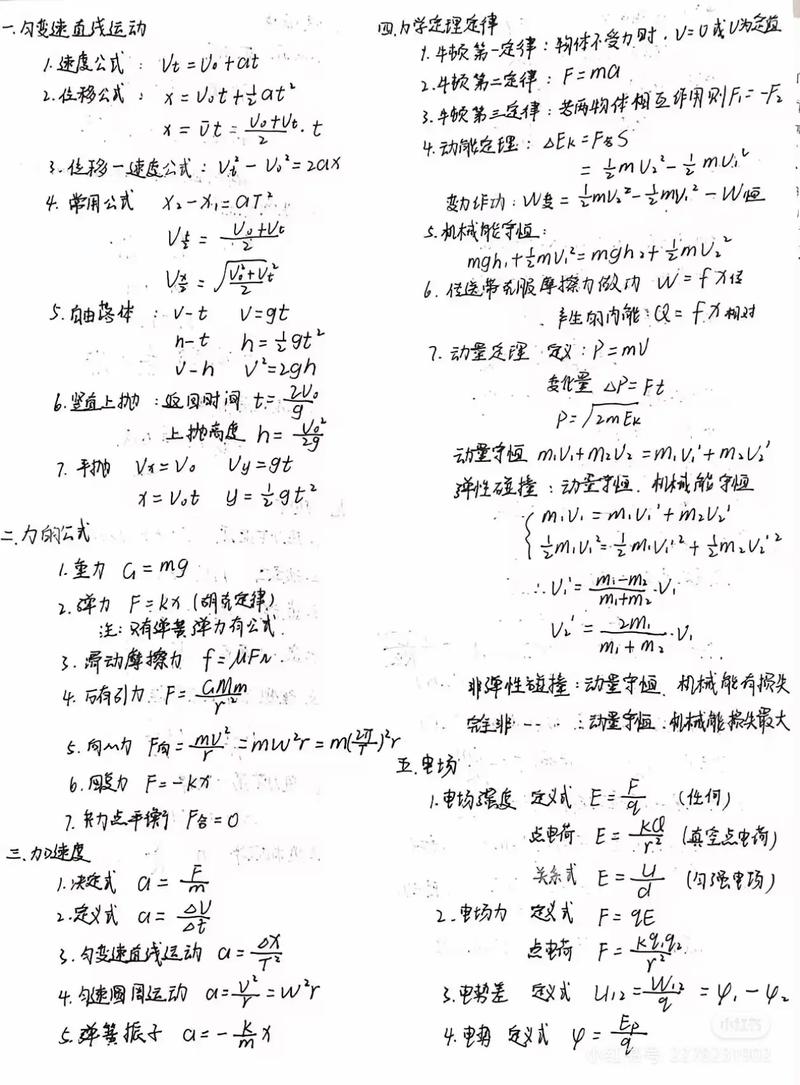 一.匀变速直线运动
1.速度公式: Vt=V₀+at
2.位移公式: x=V₀t+½at²
x=v̄t=(V₀+Vt)/2·t
3.位移—速度公式: Vt²-V₀²=2ax
4.常用公式 x₂-x₁=aT²
V_{t/2}=(V₀+Vt)/2
V_{x/2}=√((V₀²+Vt²)/2)
5.自由落体: v-t v=gt
h-t h=½gt²
v-h v²=2gh
6.竖直上抛:返回时间 t=2V₀/g
上抛高度 h=V₀²/2g
7.平抛 Vx=V₀ Vy=gt
x=V₀t y=½gt²
二.力的公式
1.重力 G=mg
2.弹力 F=kx (胡克定律)
注:只有弹簧弹力有公式.
3.滑动摩擦力 f=μF_N.
4.万有引力 F=GMm/r²
5.向心力 F向=mv²/r=mω²r=m(2π/T)²r
6.回复力 F=-kx
7.共力点平衡 F合=0
三.加速度
1.决定式 a=F/m
2.定义式 a=ΔV/Δt
3.匀变速直线运动 a=Δx/T²
4.匀速圆周运动 a=v²/r=ω²r
5.弹簧振子 a=-k/m x
四.力学定理定律
1.牛顿第一定律:物体不受力时,v=0或v为定值
2.牛顿第二定律: F=ma
3.牛顿第三定律:若两物体相互作用则F₁=-F₂
4.动能定理: ΔEk=F合S
=½mV₂²-½mV₁²
变力作功: W变=½mV₂²-½mV₁²-W恒
5.机械能守恒:
mgh₁+½mV₁²=mgh₂+½mV₂²
6.传送带克服摩擦力做功 W=fx传
产生的内能:Q=fx相对
7.动量定理 定义:P=mV
变化量 ΔP=Ft
P=√(2mEk)
动量守恒 m₁V₁+m₂V₂=m₁V₁'+m₂V₂'
弹性碰撞:动量守恒.机械能守恒
{m₁V₁=m₁V₁'+m₂V₂'
½m₁V₁²=½m₁V₁'²+½m₂V₂'²
∴V₁'=(m₁-m₂)/(m₁+m₂)·V₁
V₂'=2m₁/(m₁+m₂)·V₁
非弹性碰撞:动量守恒.机械能有损失
完全非……:动量守恒.机械能损失最大
五.电场
1.电场强度 定义式 E=F/q (任何)
点电荷 E=kQ/r² (真空点电荷)
关系式 E=U/d (匀强电场)
2.电场力 定义式 F=qE
点电荷 F=kq₁q₂/r²
3.电势差 定义式 U₁₂=W₁₂/q=φ₁-φ₂
4.电势 定义式 φ=Ep/q
小红书
小红书号 2278231902